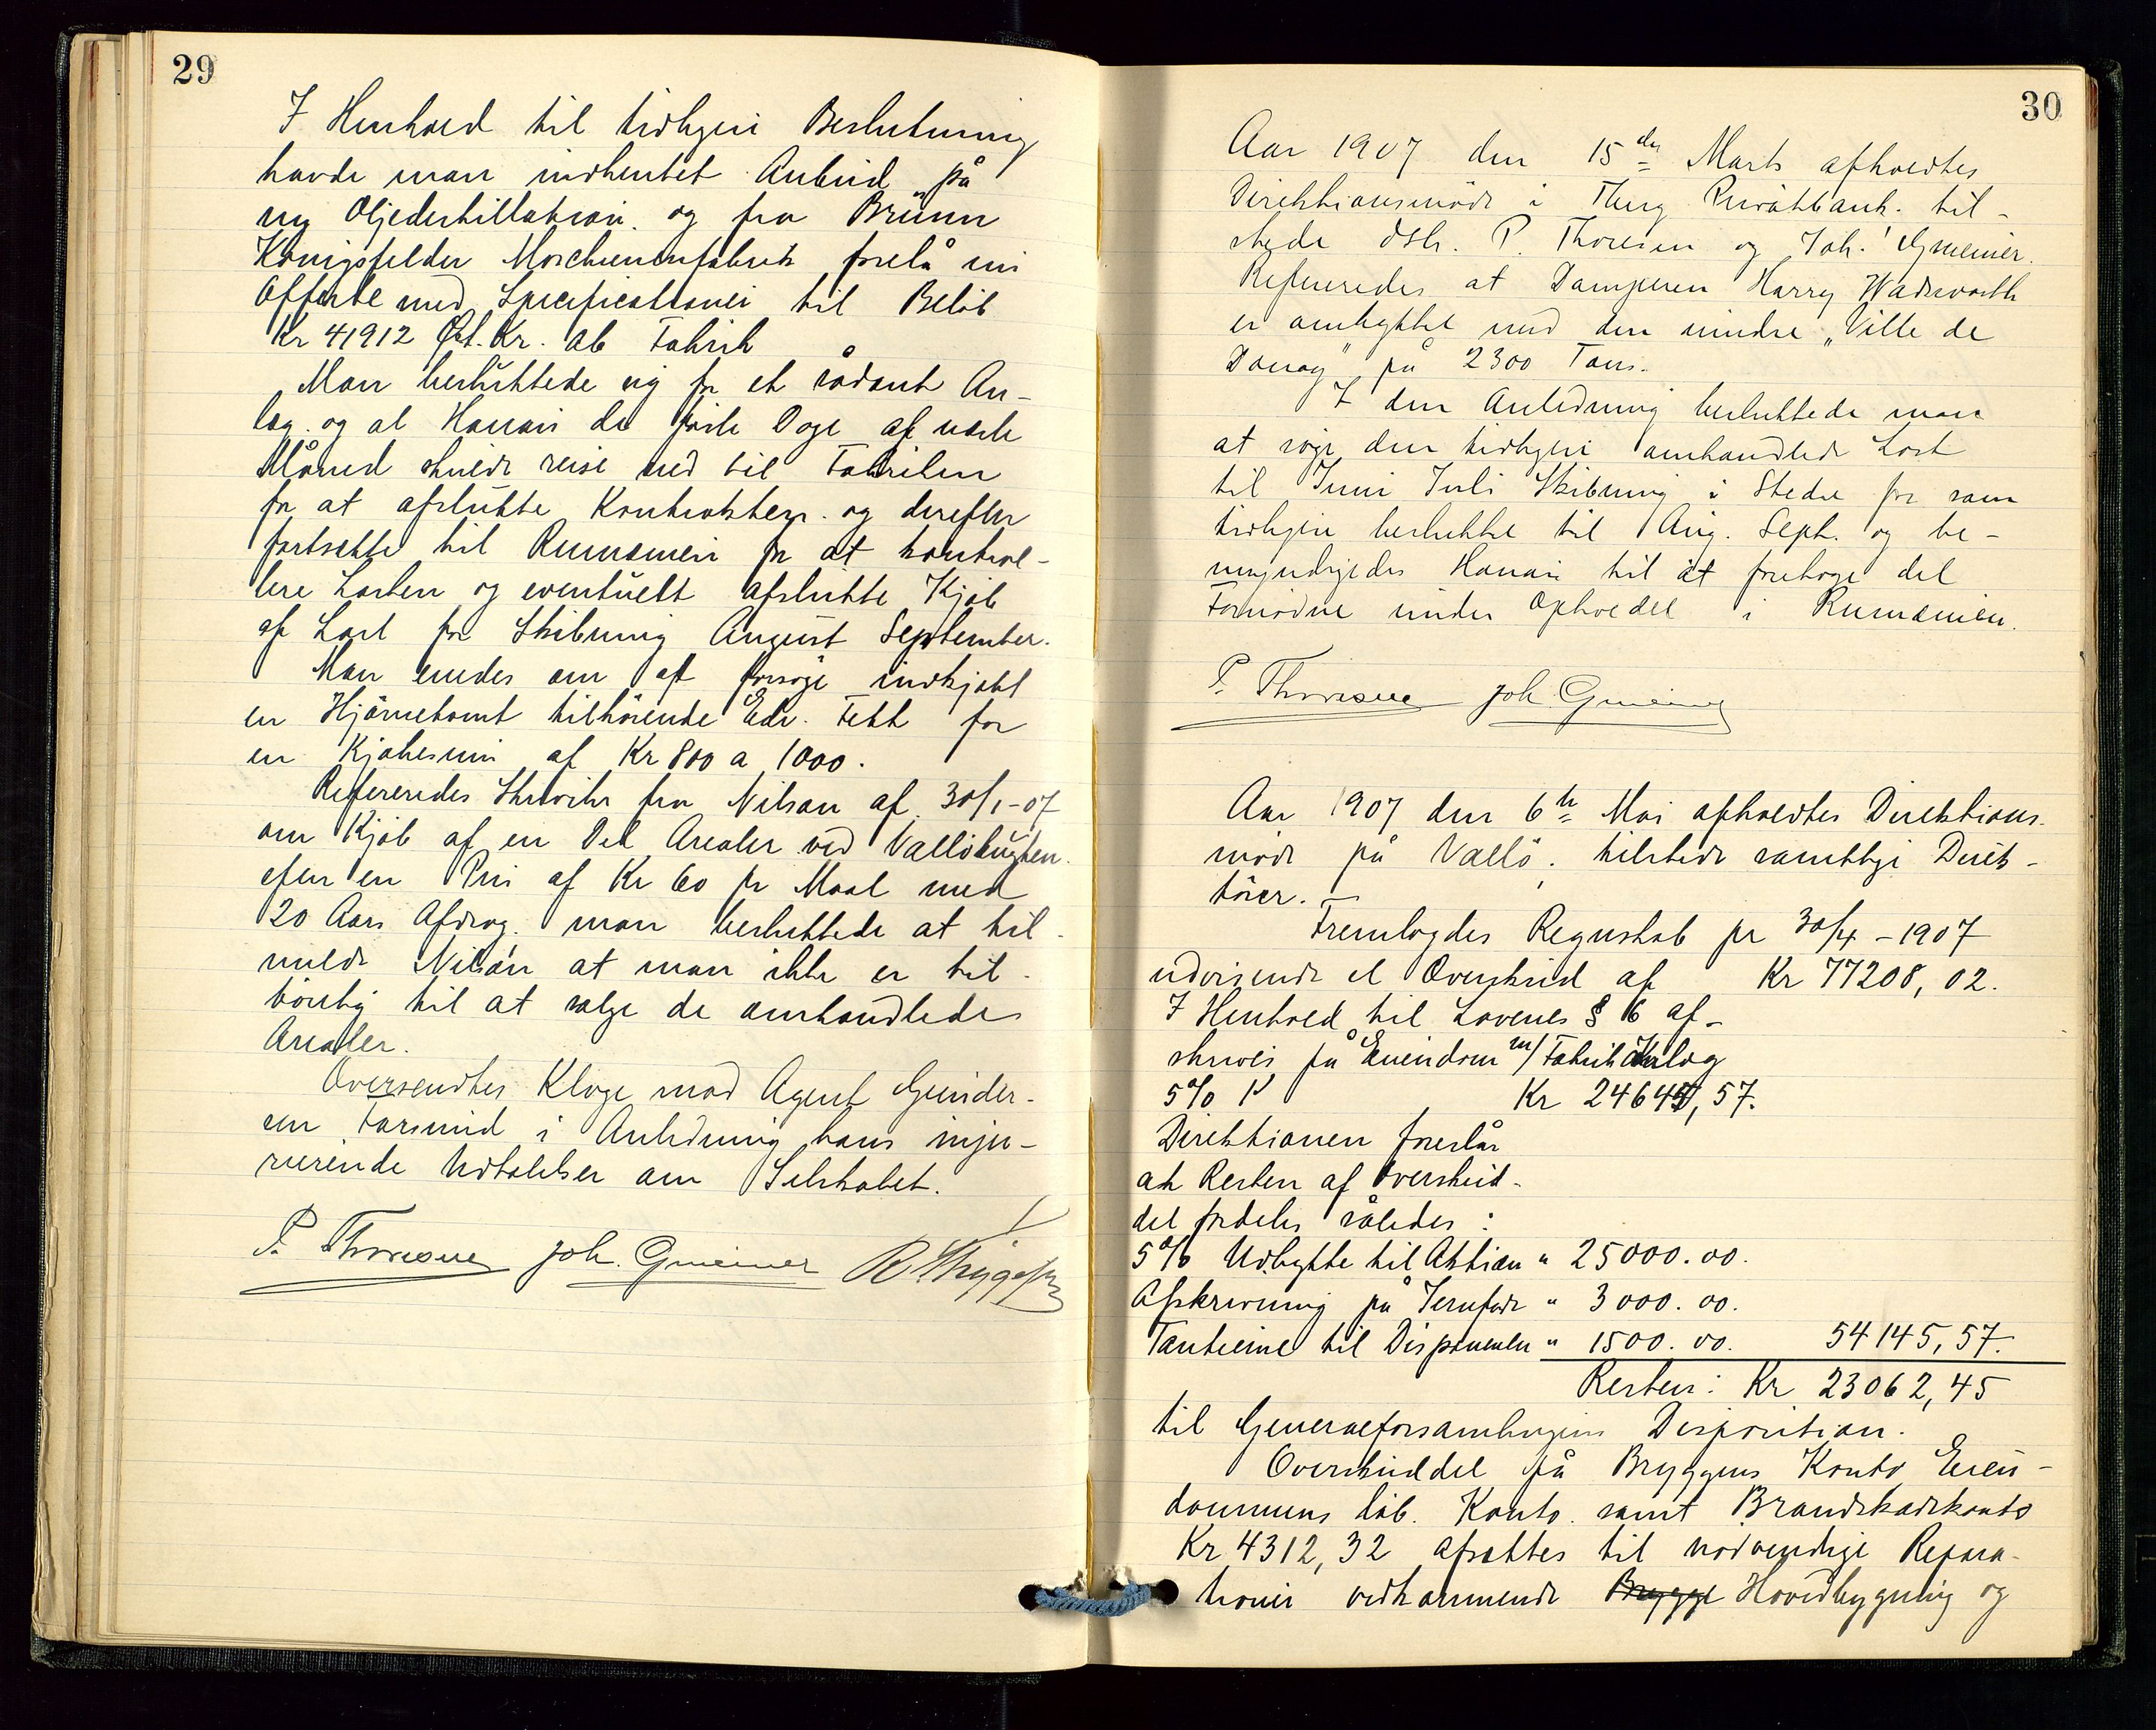 29
I Henhold til tidligere Beslutning
havde man indhentet Anbud på
ny Oljedestillation og fra Brünn
Königsfelder Maschienenfabrik forelå en
Offerte med Specificationer til Beløb
Kr 41912 Øst. Kr. ab Fabrik
Man besluttede sig for et sådant An-
læg. og at Hanan de første Dage af næste
Måned skulde reise ned til Fabriken
for at afslutte Kontrakten. og derefter
fortsætte til Rumænien for at kontrol-
lere Lasten og eventuelt afslutte Kjøb
af Last for Skibning August September.
Man enedes om at forsøge indkjøbt
en Hjørnetomt tilhørende Edv. Fett for
en Kjøbesum af Kr 800 a 1000.
Refereredes Skrivelse fra Nilson af 30/1-07
om Kjøb af en Del Arealer ved Valløbugten.
efter en Pris af Kr 60 pr Maal med
20 Aars Afdrag. man besluttede at til-
melde Nilson at man ikke er til-
bøielig til at sælge de omhandlede
Arealer.
Oversendtes Klage mod Agent Gunder-
sen Farsund i Anledning hans inju-
rierende Udtalelser om Selskabet.
P. Thoresen Joh. Gmeiner
30
Aar 1907 den 15de Marts afholdtes
Direktionsmøde i Tbrg Privatbank. til-
stede dhr. P. Thoresen og Joh. Gmeiner.
Refereredes at Damperen Harry Wadsworth
er ombyttet med den mindre "Ville de
Douay" på 2300 Tons.
I den Anledning besluttede man
at søge den tidligere omhandlede Last
til Juni Juli Skibning i Stedet for som
tidligere besluttet til Aug. Sept. og be-
myndigedes Hanan til at foretage det
Fornødne under Opholdet i Rumænien.
P. Thoresen Joh Gmeiner
Aar 1907 den 6te Mai afholdtes Direktions-
møde på Vallø. tilstede samtlige Direk-
tører.
Fremlagdes Regnskab pr 30/4-1907
udvisende et Overskud af Kr 77208,02.
I Henhold til Lovenes § 6 af-
skrives på Eiendom m/ Fabrikanlæg
5% Kr 24645,57.
Direktionen foreslår
at Resten af Overskud-
det fordeles således:
5% Udbytte til Aktiers " 25000.00.
Afskrivning på Jernfade " 3000.00.
Tantieme til Disponenten " 1500.00. 54145,57.
Resten: Kr 23062,45
til Generalforsamlingens Disposition.
Overskuddet på Bryggens Konto Eien-
dommens løb. Konto. samt Brandskadekonto
Kr 4312,32 afsættes til nødvendige Repara-
tioner vedkommende Brygge Hovedbygning og